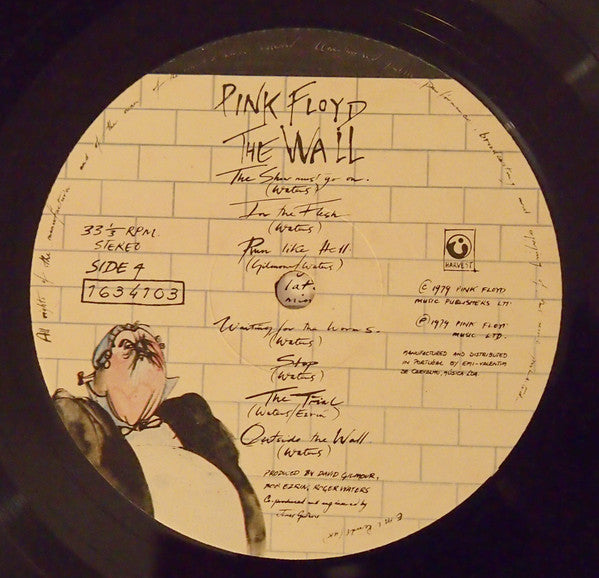 PINK FLOYD
THE WALL
The Show must go on.
(Waters)
In the Flesh
(Waters)
Run like Hell.
(Gilmour/Waters)
Waiting for the Worms.
(Waters)
Stop
(Waters)
The Trial
(Waters/Ezrin)
Outside the Wall.
(Waters)
PRODUCED BY DAVID GILMOUR,
BOB EZRIN, ROGER WATERS
Co-produced and engineered by
James Guthrie
33 1/3 RPM.
STEREO
SIDE 4
1634103
HARVEST
© 1979 PINK FLOYD
MUSIC PUBLISHERS LTD.
℗ 1979 PINK FLOYD
MUSIC LTD.
MANUFACTURED AND DISTRIBUTED
IN PORTUGAL BY EMI-VALENTIM
DE CARVALHO, MÚSICA LDA.
All rights of the manufacturer and of the owner of the
performance broadcasting and copying of this